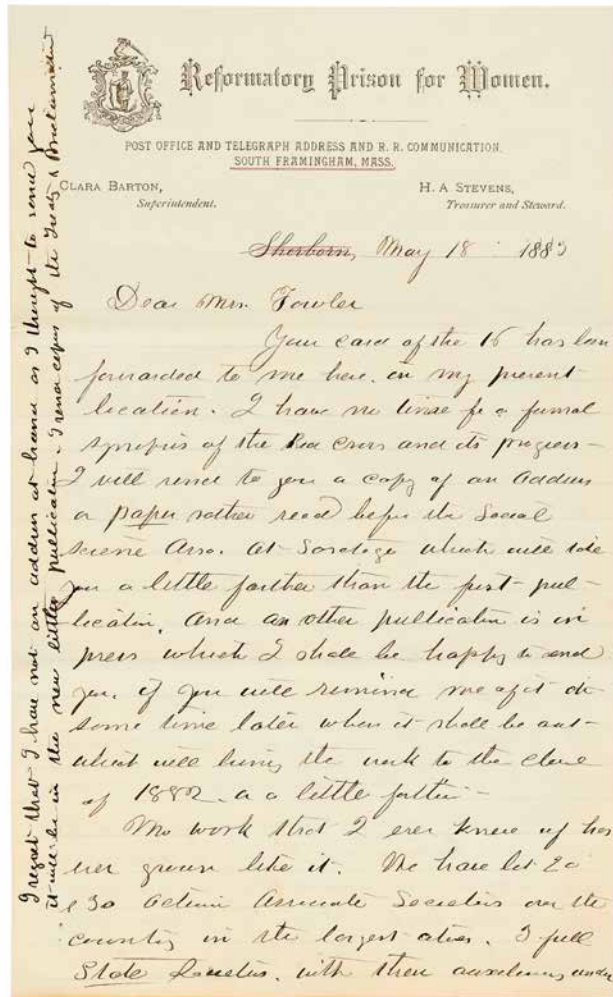 Reformatory Prison for Women.
POST OFFICE AND TELEGRAPH ADDRESS AND R. R. COMMUNICATION,
SOUTH FRAMINGHAM, MASS.
CLARA BARTON,
Superintendent.
H. A. STEVENS,
Treasurer and Steward.
Sherborn, May 18 1883
Dear Mrs. Fowler
Your card of the 16 has been
forwarded to me here, in my present
location. I have no time for a formal
synopsis of the Red Cross and its progress
I will send to you a copy of an address
or paper rather read before the Social
Science Asso. at Saratoga which will take
you a little farther than the first pub-
lication, and an other publication is in
press which I shall be happy to send
you, if you will remind me of it at
some time later when it shall be out
which will bring the work to the close
of 1882 or a little farther
No work that I ever knew of has
ever grown like it. We have bet 20
& 30 active Associate Societies over the
country in the largest cities. 3 full
State Societies, with their auxiliaries under
I regret that I have not an address at hand as I thought to send you
it will be in the new little publication. I send copies of the Treaty &